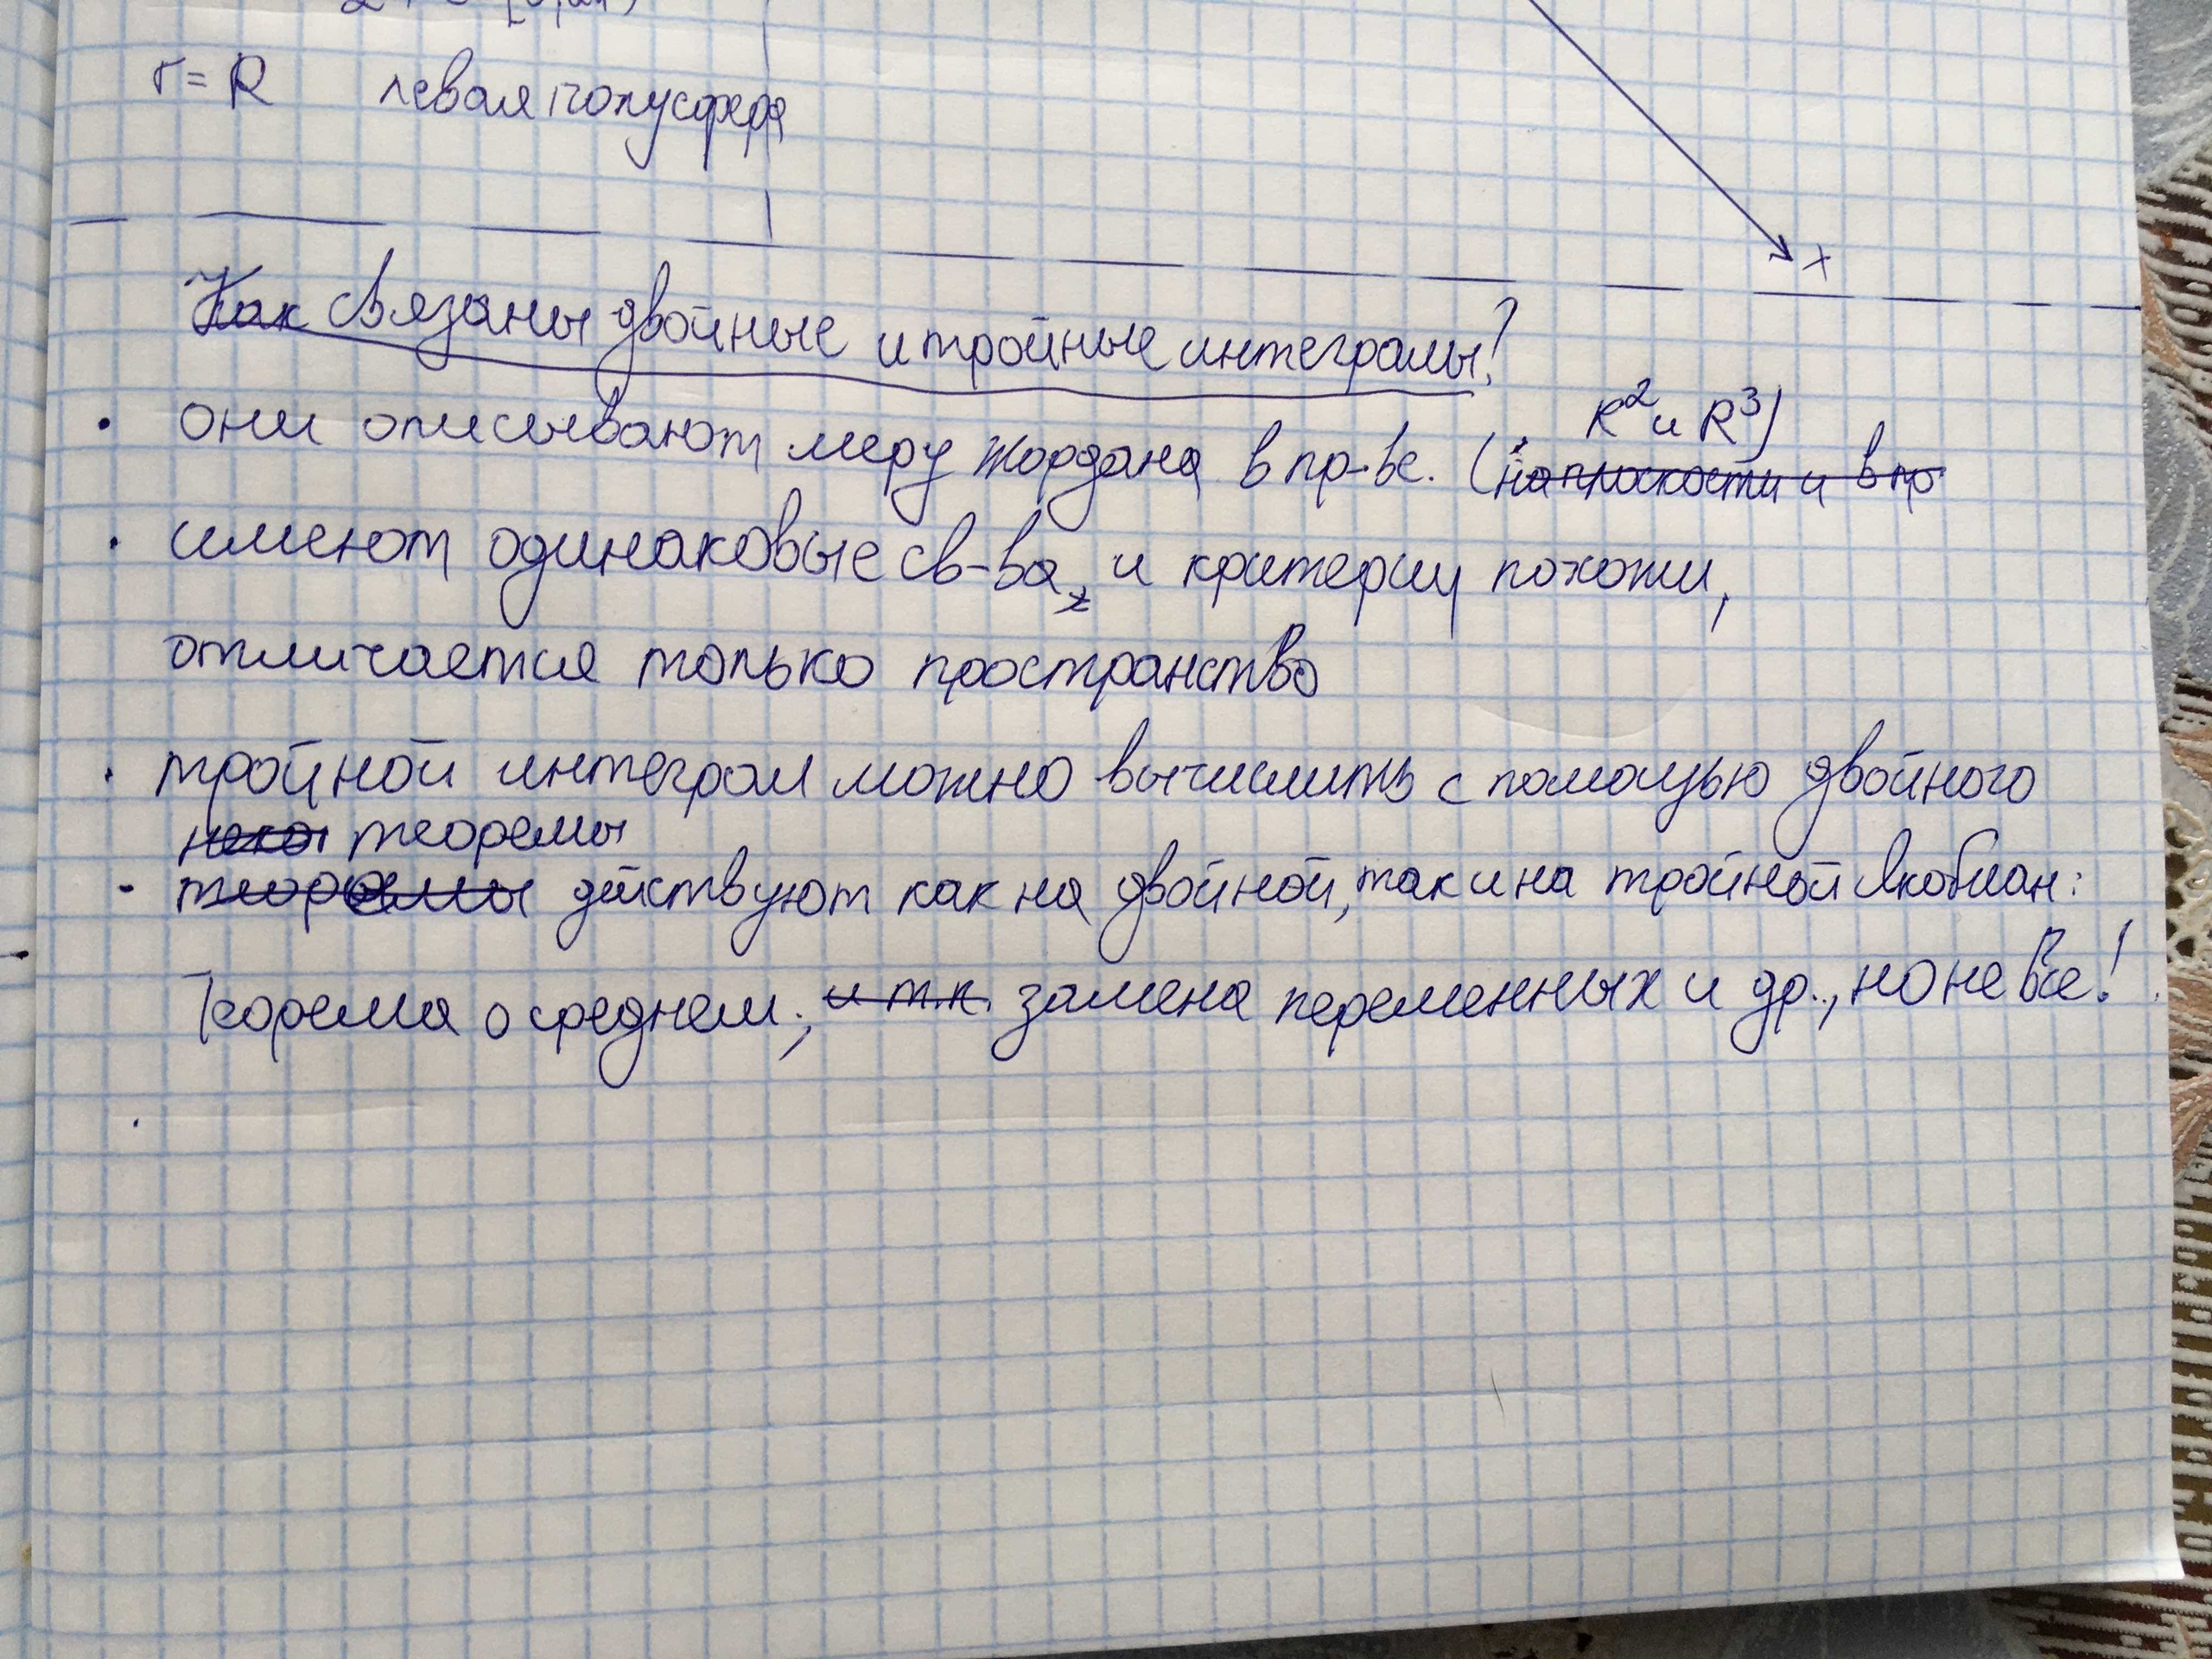 r = R левая полусфера
x
Как связаны двойные и тройные интегралы?
R² и R³)
• они описывают меру Жордана в пр-ве. (на плоскости и в пр
• имеют одинаковые св-ва, и критерии похожи,
отличается только пространство
• тройной интеграл можно вычислить с помощью двойного
теоремы
- теоремы действуют как на двойной, так и на тройной Якобиан:
Теорема о среднем; и т.к. замена переменных и др., но не все!